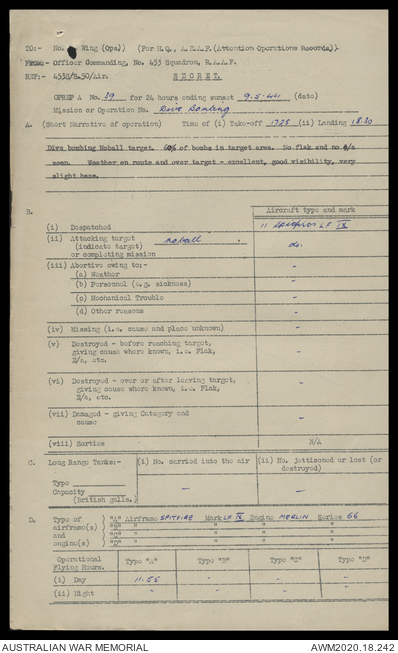 TO:- No. Wing (Ops)) (For H.Q., A.E.A.F. (Attention Operations Records)).
FROM:- Officer Commanding, No. 453 Squadron, R.A.A.F.
REF:- 453S/S.50/Air. SECRET.
OPREP A No. 39 for 24 hours ending sunset 9.5.44 (date)
Mission or Operation No. Dive Bombing
A. (Short Narrative of operation) Time of (i) Take-off 1725 (ii) Landing 18.30
Dive bombing Noball target. 60% of bombs in target area. No flak and no e/a
seen. Weather en route and over target - excellent, good visibility, very
slight haze.
B. Aircraft type and mark
(i) Despatched 11 Spitfires LF IX
(ii) Attacking target noball . do.
(indicate target)
or completing mission
(iii) Abortive owing to:-
(a) Weather -
(b) Personnel (e.g. sickness) -
(c) Mechanical Trouble -
(d) Other reasons -
(iv) Missing (i.e. cause and place unknown) -
(v) Destroyed - before reaching target,
giving cause where known, i.e. Flak, -
E/a, etc.
(vi) Destroyed - over or after leaving target,
giving cause where known, i.e. Flak, -
E/a, etc.
(vii) Damaged - giving Category and
cause -
(viii) Sorties N/A
C. Long Range Tanks:- (i) No. carried into the air (ii) No. jettisoned or lost (or
destroyed)
Type
Capacity - -
(British galls.)
D. Type of ) "A" Airframe SPITFIRE Mark LF IX Engine MERLIN Series 66
airframe(s) ) "B" " " " "
and ) "C" " " " "
engine(s) ) "D" " " " "
Operational Type "A" Type "B" Type "C" Type "D"
Flying Hours.
(i) Day 11.55 - - -
(ii) Night - - - -
AUSTRALIAN WAR MEMORIAL AWM2020.18.242